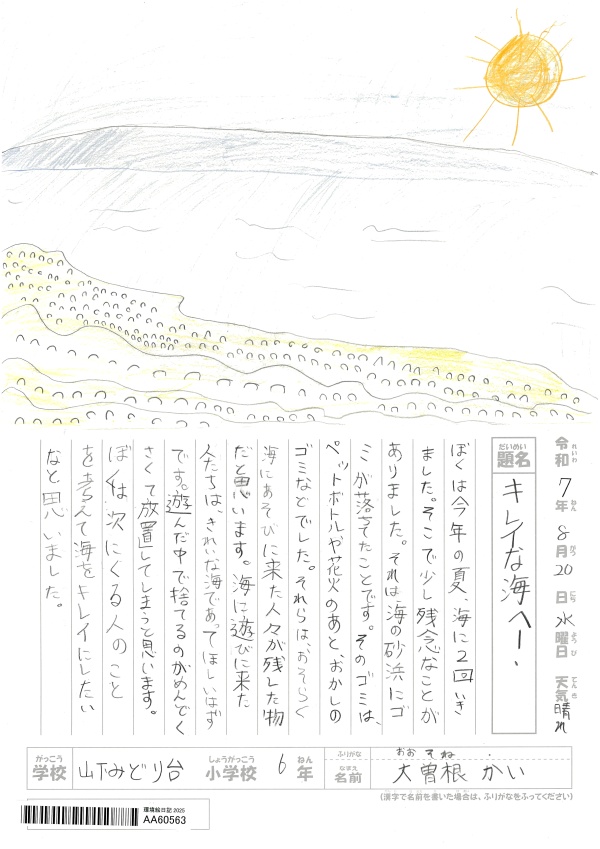 令和7年8月20日水曜日 天気晴れ
れいわ ねん がつ にち よう び てん き
だいめい
題名 キレイな海へー.
ぼくは今年の夏、海に2回いき
ました。そこで少し残念なことが
ありました。それは、海の砂浜にゴ
ミが落ちてたことです。そのゴミは、
ペットボトルや花火のあと、おかしの
ゴミなどでした。それらは、おそらく
海にあそびに来た人々が残した物
だと思います。海に遊びに来た
人たちは、きれいな海であってほしいはず
です。遊んだ中で捨てるのがめんどく
さくて放置してしまうと思います。
ぼくは次にくる人のこと
を考えて海をキレイにしたい
なと思いました。
がっこう しょうがっこう ねん ふりがな おおそね
学校 山下みどり台 小学校 6年 名前 大曽根 かい
なまえ
(漢字で名前を書いた場合は、ふりがなをふってください)
環境絵日記 2025
AA60563